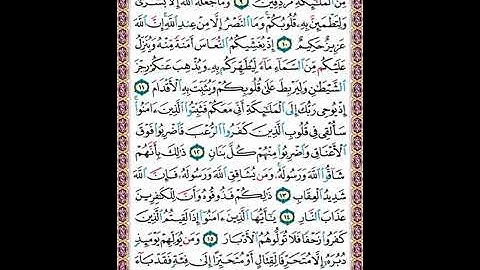 مِّنَ ٱلْمَلَٰٓئِكَةِ مُرْدِفِينَ ٩ وَمَا جَعَلَهُ ٱللَّهُ إِلَّا بُشْرَىٰ
وَلِتَطْمَئِنَّ بِهِۦ قُلُوبُكُمْ وَمَا ٱلنَّصْرُ إِلَّا مِنْ عِندِ ٱللَّهِ إِنَّ ٱللَّهَ
عَزِيزٌ حَكِيمٌ ١٠ إِذْ يُغَشِّيكُمُ ٱلنُّعَاسَ أَمَنَةً مِّنْهُ وَيُنَزِّلُ
عَلَيْكُم مِّنَ ٱلسَّمَآءِ مَآءً لِّيُطَهِّرَكُم بِهِۦ وَيُذْهِبَ عَنكُمْ رِجْزَ
ٱلشَّيْطَٰنِ وَلِيَرْبِطَ عَلَىٰ قُلُوبِكُمْ وَيُثَبِّتَ بِهِ ٱلْأَقْدَامَ ١١
إِذْ يُوحِى رَبُّكَ إِلَى ٱلْمَلَٰٓئِكَةِ أَنِّى مَعَكُمْ فَثَبِّتُوا۟ ٱلَّذِينَ ءَامَنُوا۟
سَأُلْقِى فِى قُلُوبِ ٱلَّذِينَ كَفَرُوا۟ ٱلرُّعْبَ فَٱضْرِبُوا۟ فَوْقَ
ٱلْأَعْنَاقِ وَٱضْرِبُوا۟ مِنْهُمْ كُلَّ بَنَانٍ ١٢ ذَٰلِكَ بِأَنَّهُمْ
شَآقُّوا۟ ٱللَّهَ وَرَسُولَهُۥ وَمَن يُشَاقِقِ ٱللَّهَ وَرَسُولَهُۥ فَإِنَّ ٱللَّهَ
شَدِيدُ ٱلْعِقَابِ ١٣ ذَٰلِكُمْ فَذُوقُوهُ وَأَنَّ لِلْكَٰفِرِينَ
عَذَابَ ٱلنَّارِ ١٤ يَٰٓأَيُّهَا ٱلَّذِينَ ءَامَنُوٓا۟ إِذَا لَقِيتُمُ ٱلَّذِينَ
كَفَرُوا۟ زَحْفًا فَلَا تُوَلُّوهُمُ ٱلْأَدْبَارَ ١٥ وَمَن يُوَلِّهِمْ يَوْمَئِذٍ
دُبُرَهُۥٓ إِلَّا مُتَحَرِّفًا لِّقِتَالٍ أَوْ مُتَحَيِّزًا إِلَىٰ فِئَةٍ فَقَدْ بَآءَ